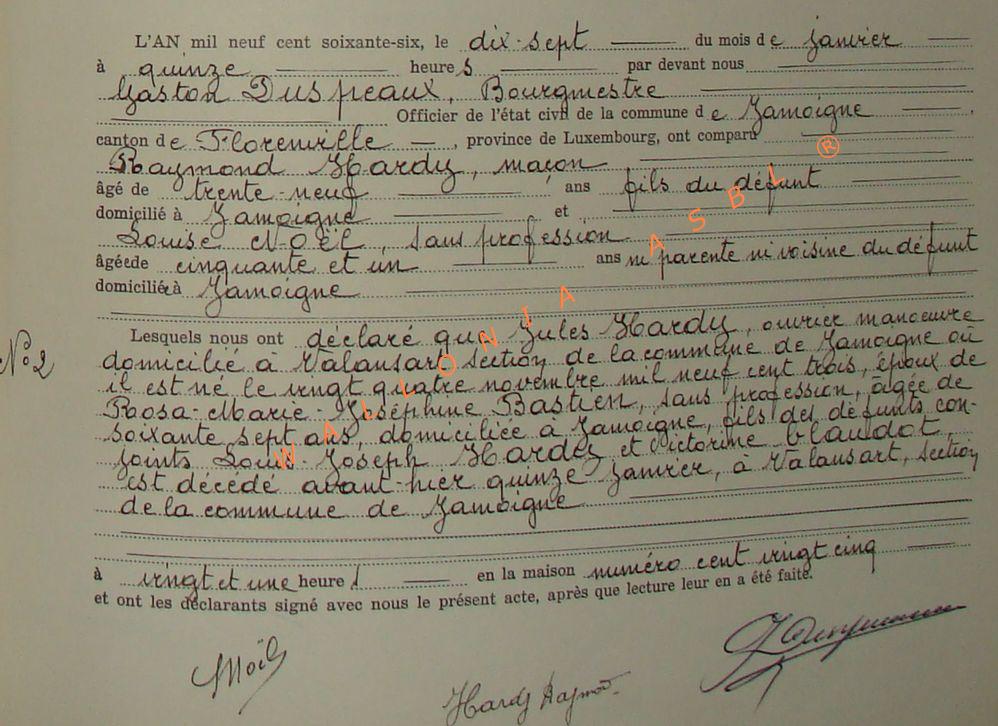 L'AN mil neuf cent soixante-six, le dix-sept du mois de janvier
à quinze heures par devant nous
Gaston Duspeaux, Bourgmestre
Officier de l'état civil de la commune de Jamoigne
canton de Florenville, province de Luxembourg, ont comparu
Raymond Hardy, maçon
âgé de trente-neuf ans fils du défunt
domicilié à Jamoigne et
Louise Noël, sans profession
âgée de cinquante et un ans ni parente ni voisine du défunt
domiciliée à Jamoigne
Lesquels nous ont déclaré que Jules Hardy, ouvrier manoeuvre
No 2 domicilié à Valansart section de la commune de Jamoigne où
il est né le vingt quatre novembre mil neuf cent trois, époux de
Rosa-Marie-Joséphine Bastien, sans profession, âgée de
soixante sept ans, domiciliée à Jamoigne, fils des défunts con-
joints Louis-Joseph Hardy et Victorine Blaudot,
est décédé avant-hier quinze janvier, à Valansart, section
de la commune de Jamoigne
à vingt et une heures en la maison numéro cent vingt cinq
et ont les déclarants signé avec nous le présent acte, après que lecture leur en a été faite.
Noël
Hardy Raymond
WALLONIA ASBL ®